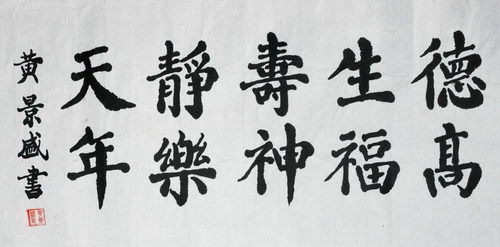 德高
生福
壽神
靜樂
天年
黄景盛書